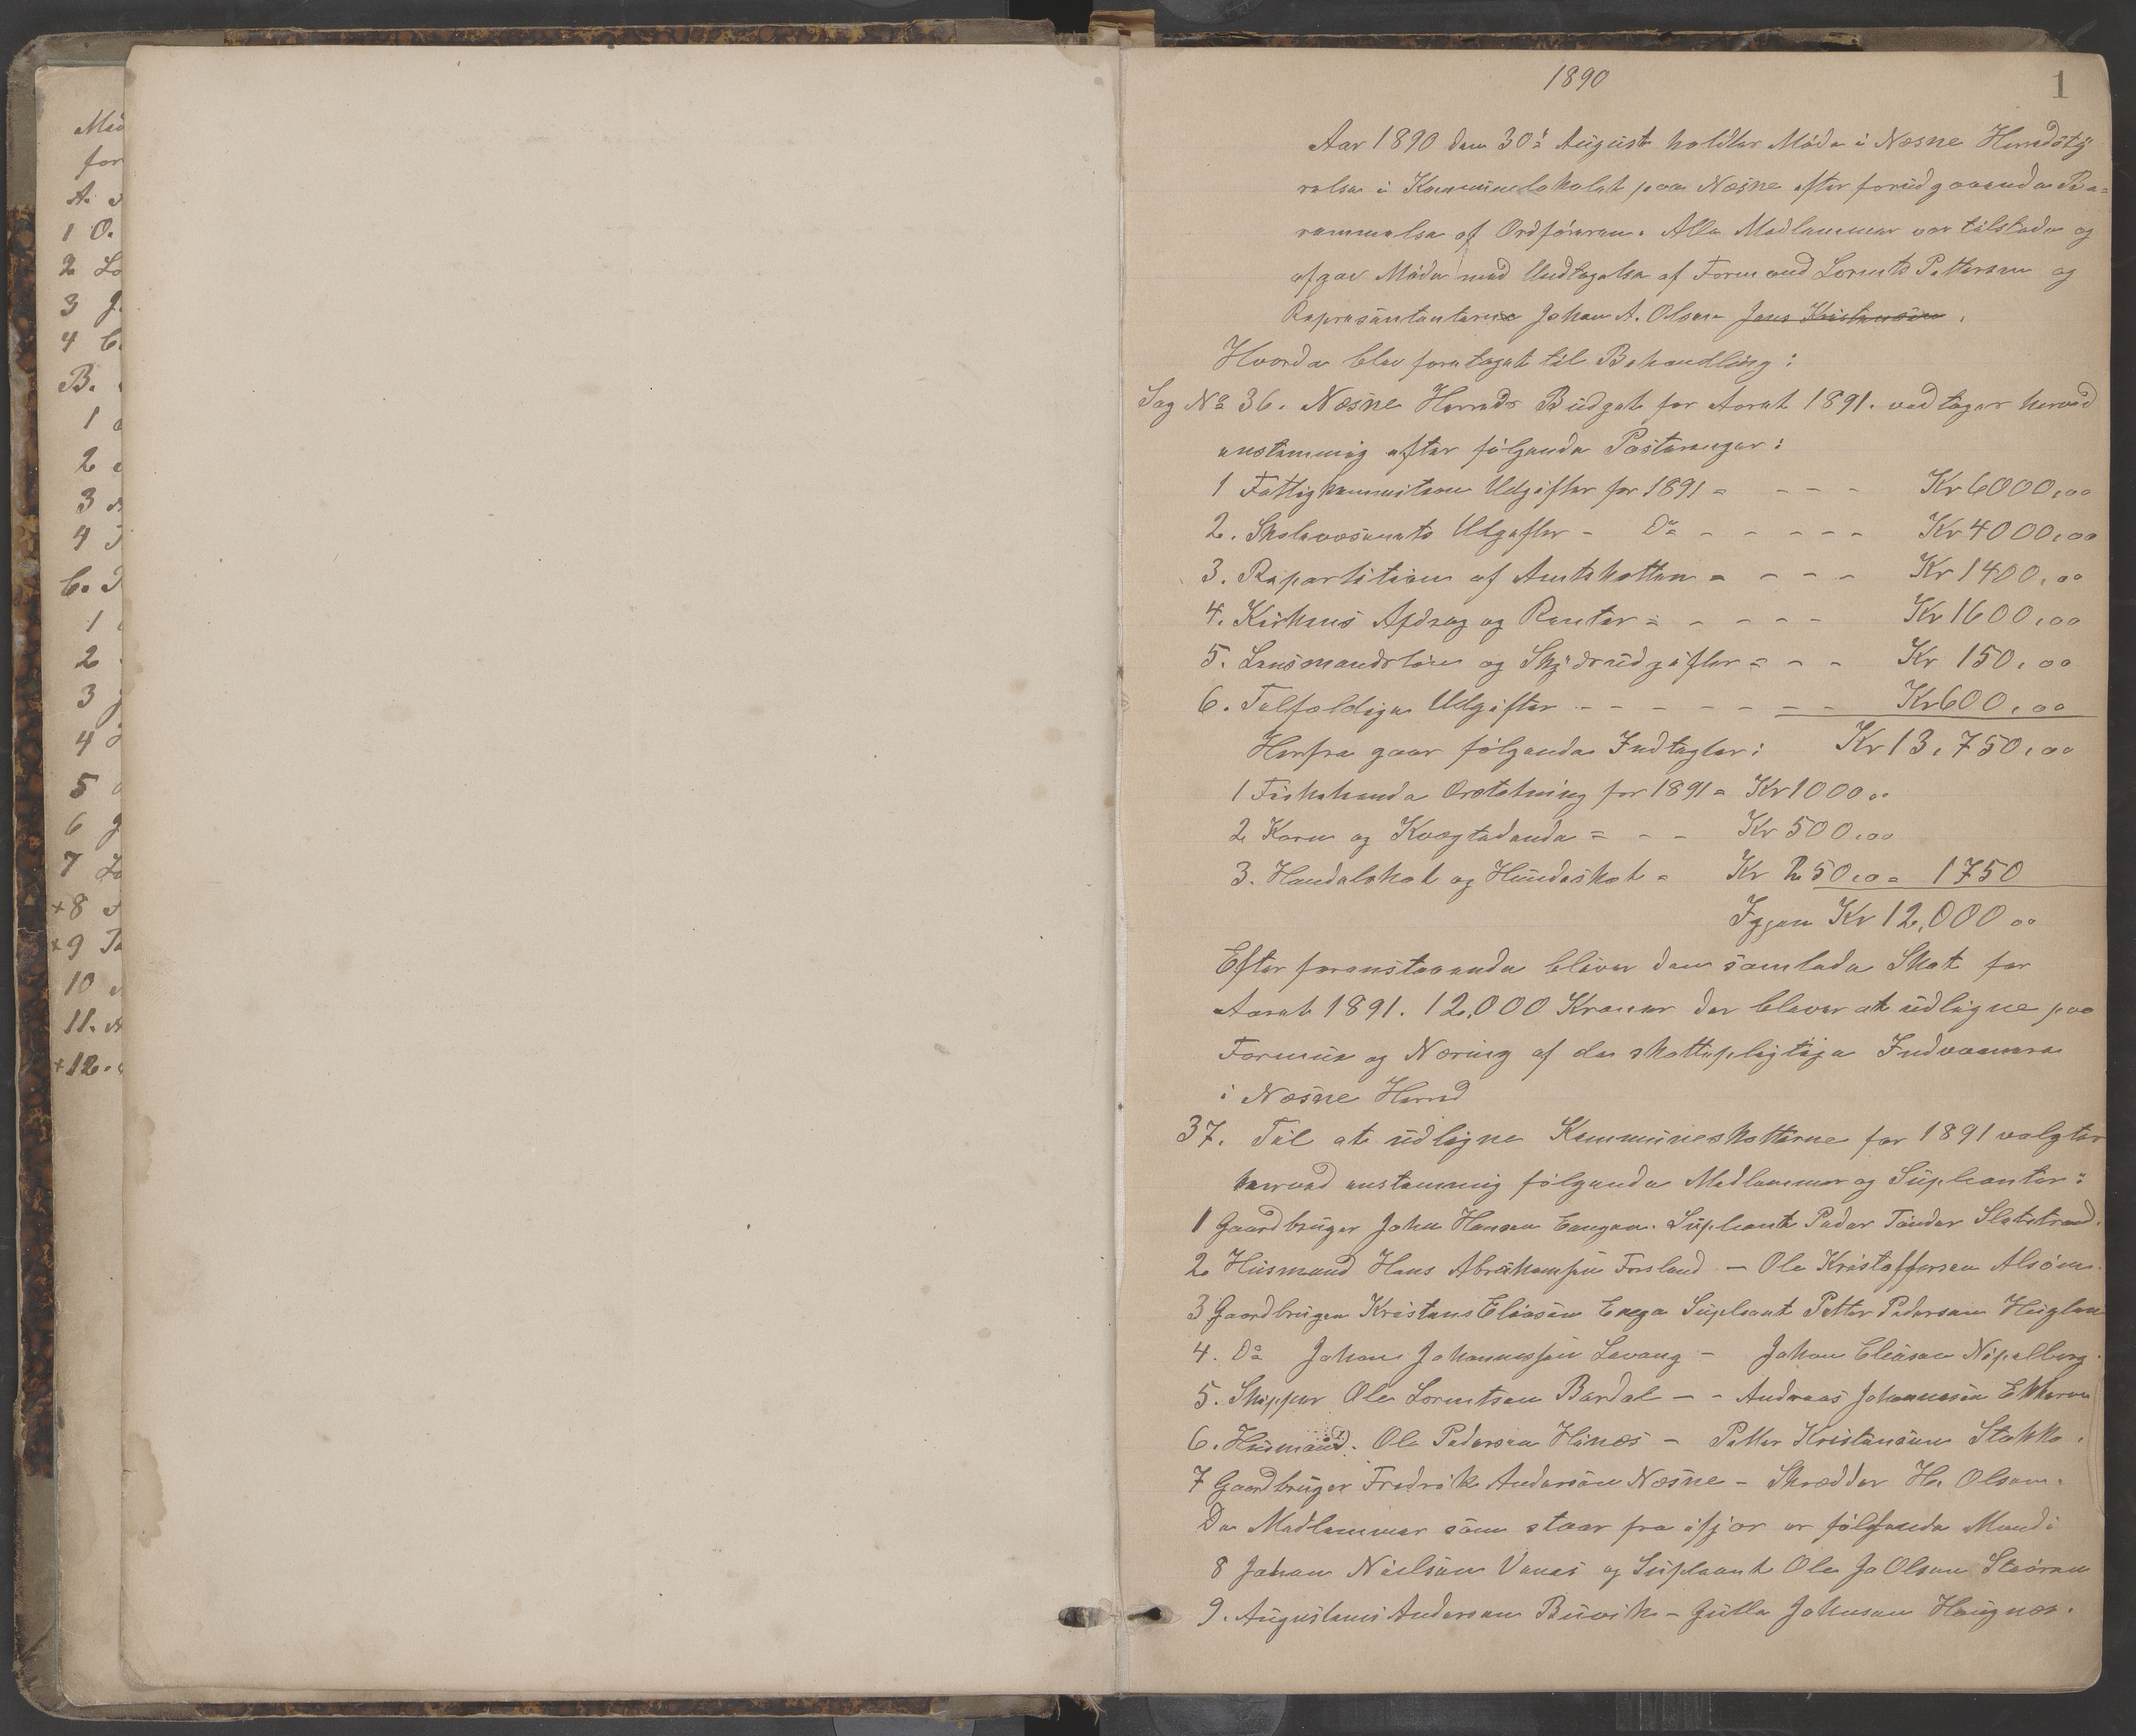 1890
1
Aar 1890 den 30te August holdtes Möde i Næsne Herredsty
relse i Kommunelokalet paa Næsne efter forudgaaende Be=
rammelse af Ordföreren. Alle Medlemmer var tilstede og
afgav Möde med Undtagelse af Formand Lorents Pettersen og
Repræsentanterne Johan A. Olsen Jens Kristensen.
Hvorda blev foretaget til Behandling:
Sag No 36. Næsne Herreds Budget for Aaret 1891. vedtages herved
enstemmig efter fölgende Posteringer:
1 Fattigkommitions Udgifter for 1891 = - - - Kr 6000,00
2. Skolevæsenets Udgifter - Do - - - - - Kr 4000,00
3. Repartition af Amtskatten = - - - Kr 1400,00
4. Kirkens Afdrag og Renter = - - - - Kr 1600,00
5. Lensmandslön og Skydsudgifter = - - Kr 150,00
6. Tilfældige Udgifter - - - - - - - Kr 600,00
Herfra gaar fölgende Indtægter: Kr 13,750,00
1 Fiskehande Erstatning for 1891 = Kr 1000 00
2 Korn og Kvægtiende = - - Kr 500,00
3. Handelskat og Hundeskat = Kr 250,00 = 1750
Igjen Kr 12,000 00
Efter foranstaaende bliver den samlede Skat for
Aaret 1891. 12,000 Kroner der bliver at udligne paa
Formue og Næring af de skattepligtige Indvaanere
i Næsne Herred
37. Til at udligne Kommuneskatterne for 1891 valgtes
herved enstemmig fölgende Medlemmer og Supleanter:
1 Gaardbruger John Hansen Eangen. Supleant Peder Tönder Sletstrand.
2 Husmand Hans Abrahamsen Forsland - Ole Kristoffersen Alsöen.
3 Gaardbruger Kristens Eliasen Enga Supleant Petter Pedersen Huglen
4. Do Johan Johannessen Levang - Johan Eliasen Nipelberg.
5. Skipper Ole Lorentsen Bardal - - Andreas Johannesen Ekkeren
6. Husmand. Ole Pedersen Hinæs - Petter Kristensen Stokka.
7 Gaardbruger Fredrik Andersen Næsne - Skrædder H. Olsen.
De Medlemmer som staar fra ifjor er fölgende Mænd:
8 Johan Nielsen Vænes og Supleant Ole Jo Olsen Stöiren
9. Augustenus Andersen Buvik - Julla Johnsen Haugnæs.
Mö
for
A.
1 O.
2 Lo
3 J.
4 C.
B.
1
2
3
4
C.
1
2
3
4
5
6
7 Lo
+8
+9
10
11.
+12.